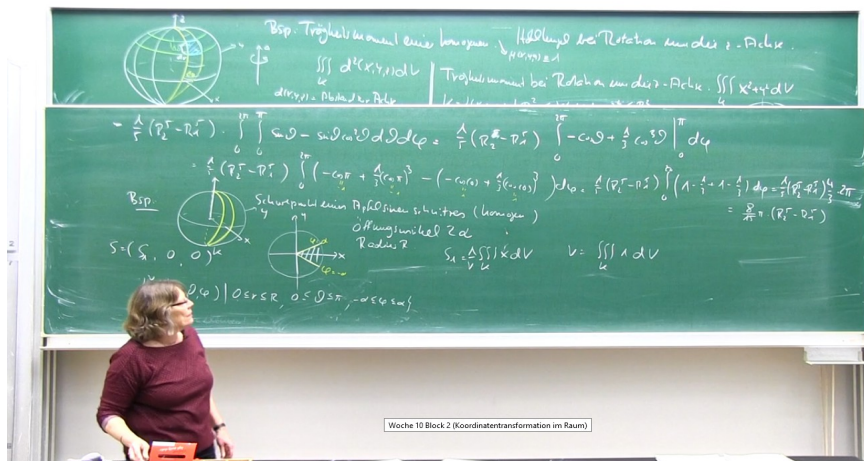 Bsp. Trägheitsmoment einer homogenen Hohlkugel bei Rotation um die z-Achse.
μ(x,y,z)=1
∭ d²(x,y,z)dV
K
d(x,y,z)= Abstand zur Achse
Trägheitsmoment bei Rotation um die z-Achse. ∭ x²+y² dV
K
= 1/5 (R₂⁵-R₁⁵) · ∫₀^2π ∫₀^π sinϑ - sinϑ cos²ϑ dϑdφ = 1/5 (R₂⁵-R₁⁵) ∫₀^2π -cosϑ + 1/3 cos³ϑ |₀^π dφ
= 1/5 (R₂⁵-R₁⁵) ∫₀^2π (-cosπ + 1/3 (cosπ)³ - (-cos(0) + 1/3 (cos(0))³)) dφ = 1/5 (R₂⁵-R₁⁵) ∫₀^2π (1 - 1/3 + 1 - 1/3) dφ = 1/5 (R₂⁵-R₁⁵) 4/3 · 2π
= 8/15 π · (R₂⁵-R₁⁵)
Bsp
Schwerpunkt eines Apfelsinenschnitzes (homogen)
Öffnungswinkel 2α
Radius R
S=(S₁, 0, 0)
S₁ = 1/V ∭ x dV
K
V = ∭ 1 dV
K
φ) | 0≤r≤R, 0≤ϑ≤π, -α≤φ≤α}
Woche 10 Block 2 (Koordinatentransformation im Raum)